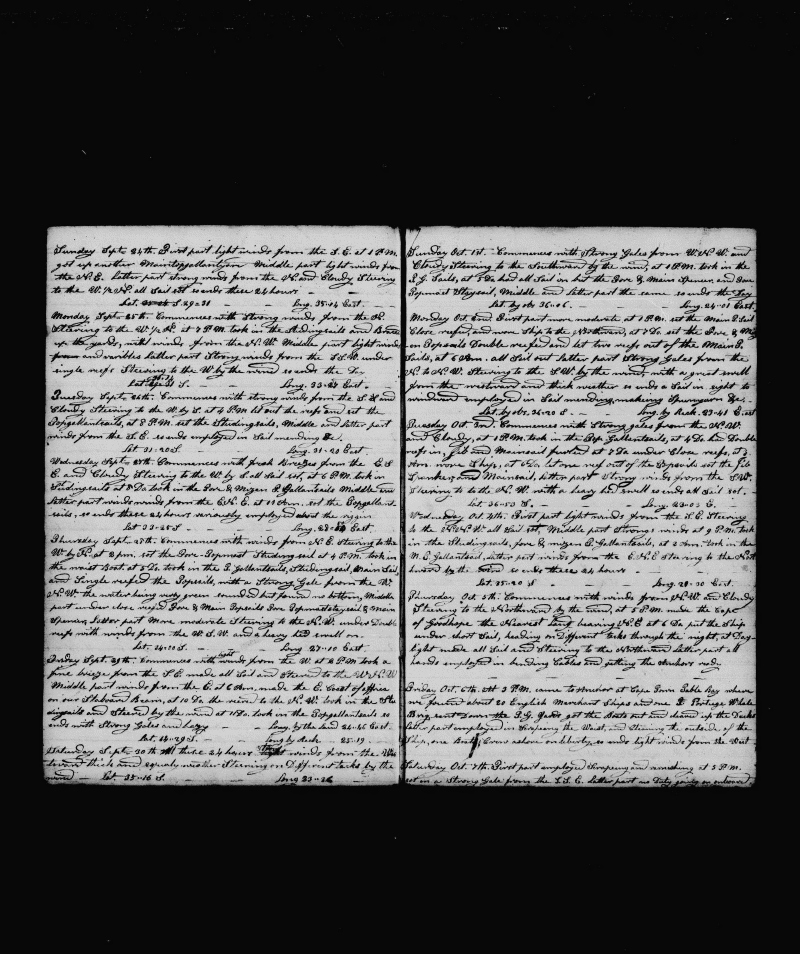 Sunday Sept. 24th First part light winds from the S. E. at 1 P.M.
got up another Maintopgallantyard Middle part light winds from
the N.E. latter part strong winds from the N. and Cloudy Steering
to the W. 1/2 N. all Sail set so ends these 24 hours
Lat. S. 29=31 Long. 35=04 East.
Monday Sept. 25th. Commences with Strong winds from the N.
Steering to the W. 1/2 N. at 2 P.M. took in the Studingsails and
up the yards, with winds from the N.W. Middle part light winds
and varibles latter part Strong winds from the S.S.W. under
single reefs Steering to the W. by the wind so ends the Day
Lat. S. Long. 33=23 East.
Tuesday Sept. 26th. Commences with strong winds from the S. E and
Cloudy Steering to the W. by S. at 4 P.M. let out the reefs and set the
Topgallantsails, at 8 P.M. set the Studingsails, Middle and latter part
winds from the S. E. so ends employed in Sail mending &c.
Lat. 31=20 S. Long. 31=23 East.
Wednesday Sept. 27th. Commences with fresh Breezes from the E. S
E. and Cloudy Steering to the W. by S. all Sail set, at 6 P.M. took in
Studingsails at 8 Do took in the Fore & Mizen T. Gallantsails Middle and
latter part winds from the E.N.E. at 11 Am. set the Topgallant
sails, so ends these 24 hours variously employed about the riggin
Lat 33=25 S. Long. 29= East.
Thursday Sept. 28th. Commences with winds from N. E. Steering to the
W. by N. at 2 pm. set the Fore-Topmast Studing sail at 4 P.M. took in
the waist Boat, at 5 Do. took in the T. gallantsails, Studingsail, Main Sail,
and Single reefed the Topsails, with a Strong Gale from the W.
N.W. the water being very green sounded but found no bottom, Middle
part under close reefed Fore & Main Topsails Fore Topmaststaysail & Main
Spencer, latter part More moderate Steering to the N.W. under Double
reefs with winds from the W.S.W. and a heavy hed swell on.
Lat. 34=10 S. Long 27=10 East.
Friday Sept. 29th. Commences with light winds from the W. at 2 P.M. took a
fine breeze from the S. E. made all Sail and Steered to the W.N.W
Middle part winds from the E. at 6 Am. made the E. Coast of Affrica
on our Starboard Beam, at 10 Do. the wind to the N.W. took in the Stu
dingsails and Steered by the wind at 11 Do. took in the Topgallantsails so
ends with Strong Gales and Long. by the land 24=45 East.
Lat 34=29 S. Long by Reck. 25=19
Saturday Sept. 30th All these 24 hours winds from the Wes
tward thick and squaly weather Steering on Different tacks by the
wind Lat. 35=16 S. Long 23=26
Sunday Oct. 1st. Commences with Strong Gales from W.N.W. and
Cloudy Steering to the Southward by the wind, at 1 P.M. took in the
T. G. Sails, at 3 Do had all Sail in but the Fore & Main Spencer, and Fore
Topmast Staysail, Middle and latter part the same so ends the Day
Lat by obs 36=06. Long. 24=01 East.
Monday Oct 2nd. First part more moderate at 1 P.M. set the Main T. Sail
Close reefed, and wore Ship to the Northward, at 7 Do. set the Fore & Miz
en Topsails Double reefed and let two reefs out of the Main T.
Sails, at 6 Am. all Sail out latter part Strong Gales from the
N. to N.W. Steering to the S.W. by the wind, with a great swell
from the westward and thick weather so ends a Sail in sight to
windward employed in Sail mending, making Spunyarn &c.
Lat. by obs. 36=20 S. Long. by Reck. 23=41 East
Tuesday Oct. 3rd. Commences with Strong gales from the W.N.W.
and Cloudy, at 1 P.M. took in the Top Gallantsails, at 4 Do. had Double
reefs in, Jib and Mainsail furled at 7 Do under Close reefs, at 3.
Am. wore Ship, at 6 Do. let one reef out of the Topsails set the Jib
and Mainsail, latter part Strong winds from the S.W.
Steering to the N.W. with a heavy hed swell so ends all Sail set.
Lat. 36=53 S. Long. 23=03 E.
Wednesday Oct. 4th. First part light winds from the S. E. Steering
to the N.N.W. all Sail set, Middle part Strong winds at 9 P.M. took
in the Studingsails, fore & mizen T. Gallantsails, at 2 Am. took in the
M. T. Gallantsail, latter part winds from the E.N.E Steering to the North
ward by the wind so ends these 24 hours
Lat. 35=20 S Long. 20=30 East.
Thursday Oct. 5th. Commences with winds from N.W. and Cloudy
Steering to the Northward by the wind, at 5 P.M. made the Cape
of Goodhope the Nearest land bearing N.E. at 6 Do put the Ship
under short Sail, heading on different tacks through the night, at Day-
light made all Sail and Steering to the Northward Latter part all
hands employed in bending Cables and gitting the anchors redy
Friday Oct. 6th. At 3 P.M. came to Anchor at Cape Town Table Bay where
we found about 20 English Merchant Ships and one Portugee Whale
Brig sent down the T.G. Yards got the Boats out and cleared up the Decks
latter part employed in Scrapeing the Waist, and Staining the outside, of the
Ship, one Boats Crew ashore on liberty, so ends light winds from the West
Saturday Oct. 7th. First part employed Scrapeing and varnishing at 3 P.M.
set in a Strong Gale from the S.S.E. latter part no Duty going on onboard